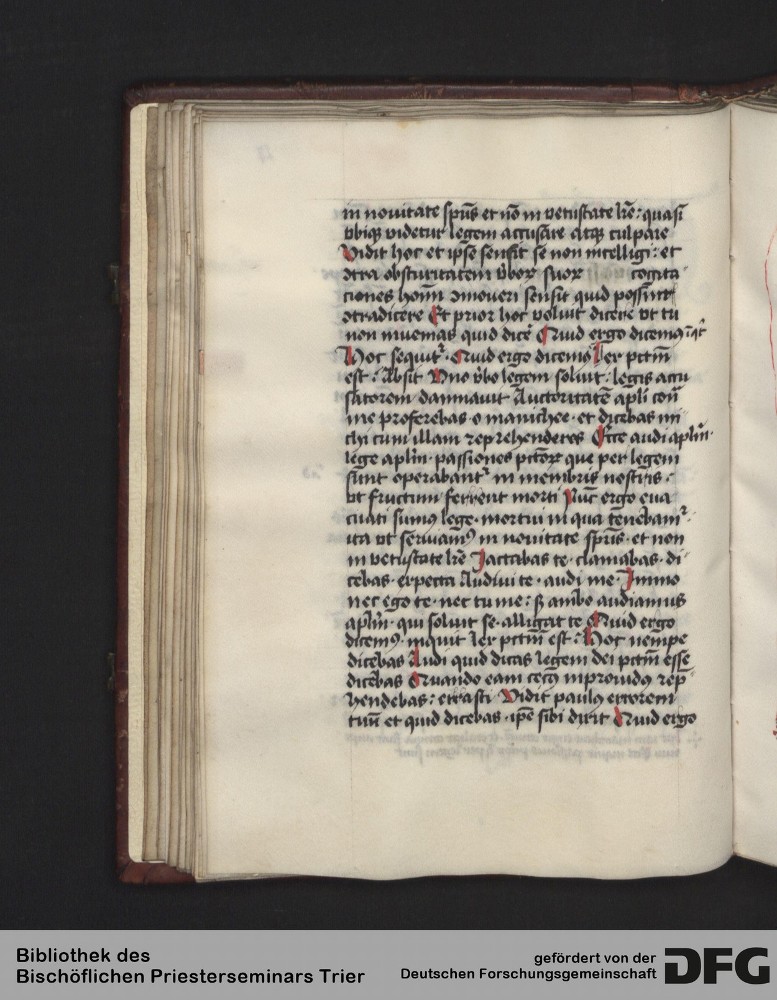 in nouitate sp̄us et nō in vetustate lr̄e : quasi
vbiq videtur legem accusare atq culpare
Vidit hoc et ip̄se sensit se non intelligi : et
ↄtra obscuritatem v̄boꝝ suoꝝ cogita
ciones hōim ↄmoueri sensit quid possint
ↄtradicere Et prior hoc voluit dicere vt tu
non inuenias quid dicē Quid ergo dicemꝰ
Hoc sequit᷑ . Quid ergo dicemꝰ lex pctm̄
est : Absit Vno v̄bo legem soluit : legis accu
satorem damnauit Auctoritatē apl̄i con̄
me proferebas o manichee . et dicebas mi
chi cum illam reprehenderes Ecce audi aplm̄ .
lege aplm̄ . passiones pctoꝝ que per legem
sunt operabant᷑ in membris nostris :
vt fructum ferrent morti Nūc ergo eua
cuati sumꝰ lege . mortui in qua tenebam᷑ .
ita vt seruiamꝰ in nouitate sp̄us . et non
in vetustate lr̄e Iactabas te . clamabas . di
cebas . expecta Audiui te . audi me . Immo
nec ego te . nec tu me : sꝫ ambo audiamus
aplm̄ . qui soluit se . alligat te Quid ergo
dicemꝰ . inquit lex pctm̄ est : Hoc nempe
dicebas Audi quid dicas legem dei pctm̄ esse
dicebas Quando eam cecꝰ inprouidꝰ rep̄
hendebas : errasti Vidit paulꝰ errorem
tuū et quid dicebas . ip̄e sibi dixit Quid ergo
Bibliothek des
Bischöflichen Priesterseminars Trier
gefördert von der
Deutschen Forschungsgemeinschaft
DFG